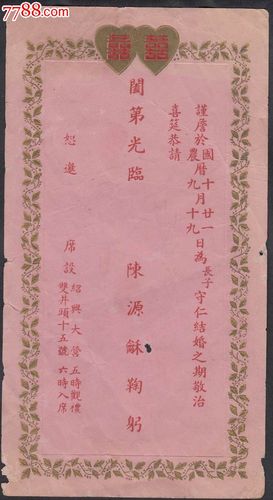 7788.com
囍 囍
謹詹於國農曆十月廿一九月十九日為長子守仁結婚之期敬治
喜筵恭請
闔第光臨
陳源龢鞠躬
恕邀
席設
紹興大營 五時觀禮
雙井頭十五號 六時入席